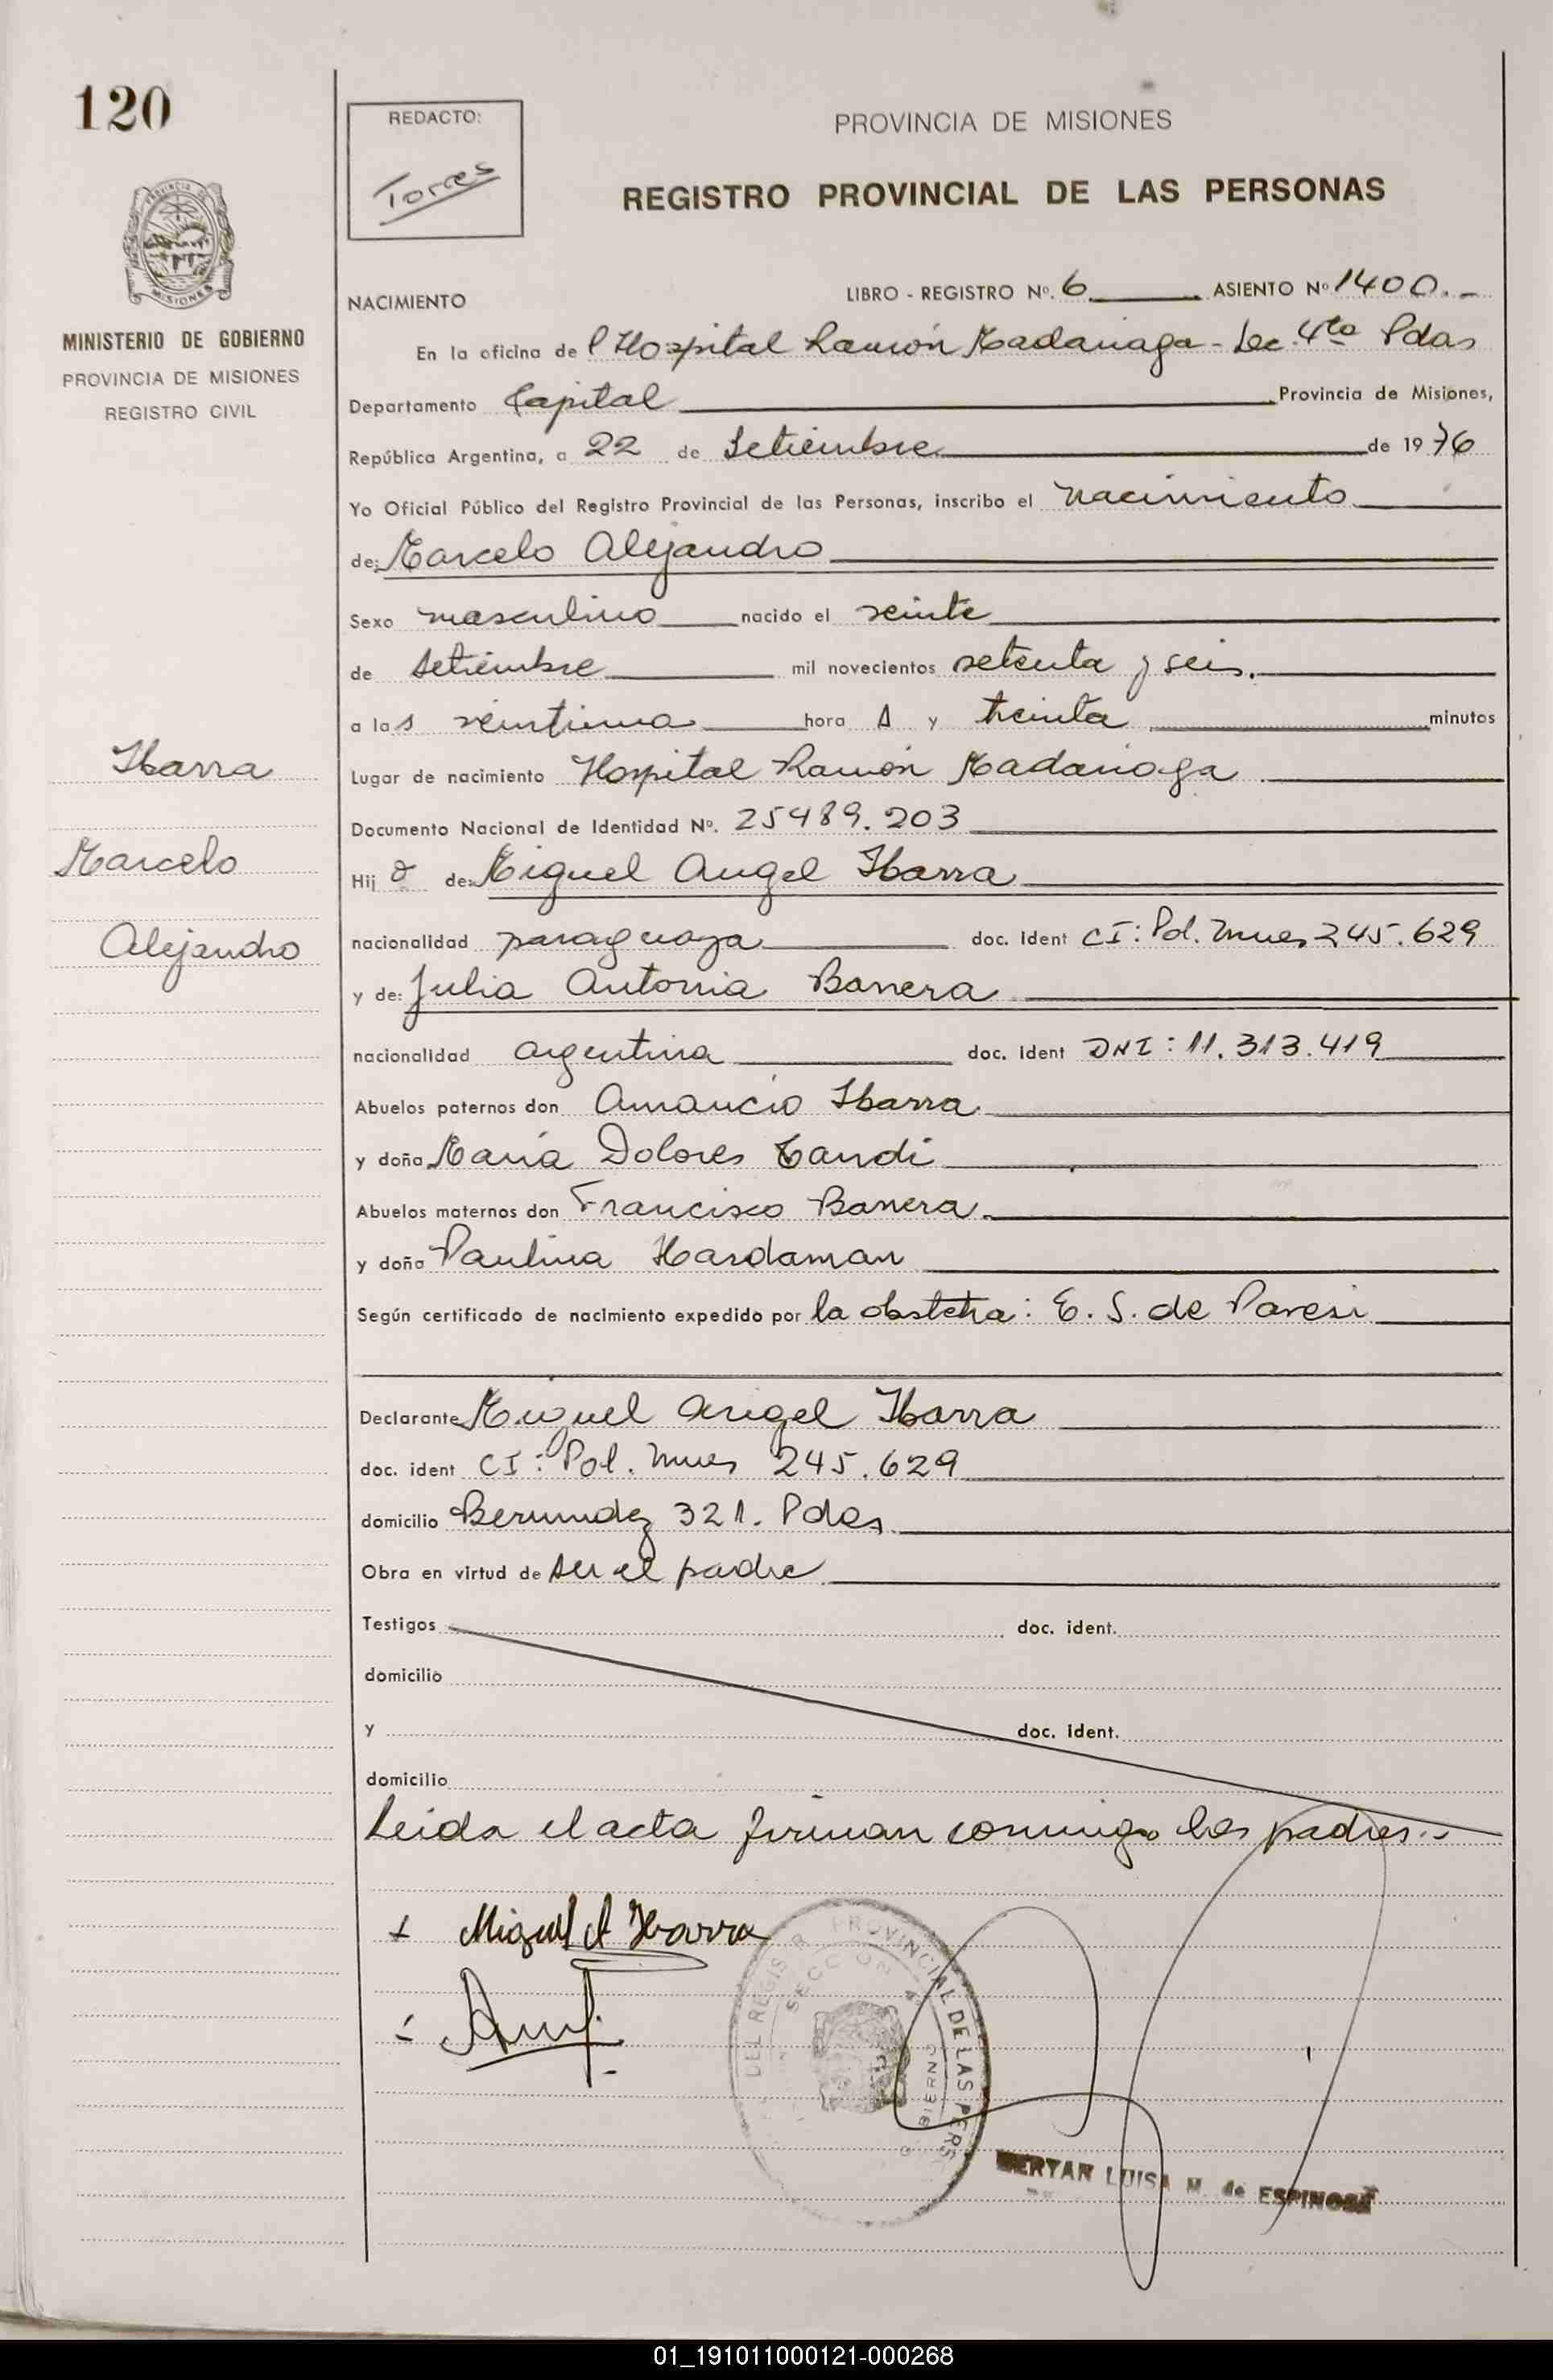 120
REDACTO:
Torres
PROVINCIA DE MISIONES
REGISTRO PROVINCIAL DE LAS PERSONAS
PROVINCIA DE
MISIONES
MINISTERIO DE GOBIERNO
PROVINCIA DE MISIONES
REGISTRO CIVIL
NACIMIENTO
LIBRO - REGISTRO Nº. 6 ASIENTO Nº 1400.-
En la oficina del Hospital Ramón Madariaga - Sec. 4ta Pdas
Departamento Capital Provincia de Misiones,
República Argentina, a 22 de Setiembre de 1976
Yo Oficial Público del Registro Provincial de las Personas, inscribo el nacimiento
de: Marcelo Alejandro
Sexo masculino nacido el veinte
de setiembre mil novecientos setenta y seis.
a las veintiuna hora s y treinta minutos
Ibarra
Lugar de nacimiento Hospital Ramón Madariaga
Documento Nacional de Identidad Nº. 25489.203
Marcelo
Hij o de: Miguel Angel Ibarra
Alejandro
nacionalidad paraguaya doc. ident CI: Pol. Mnes 245.629
y de: Julia Antonia Barrera
nacionalidad argentina doc. ident DNI: 11.313.419
Abuelos paternos don Amancio Ibarra
y doña María Dolores
Abuelos maternos don Francisco Barrera
y doña Paulina Hardaman
Según certificado de nacimiento expedido por la obstetra: E. S. de Paresi
Declarante Miguel Angel Ibarra
doc. ident CI: Pol. Mnes 245.629
domicilio Bermudez 321. Pdas
Obra en virtud de ser el padre
Testigos doc. ident.
domicilio
y doc. ident.
domicilio
Leida el acta firman conmigo los padres.-
Miguel A Ibarra
PROVINCIAL DE LAS PERS
SECCION 4
LUISA M. de ESPINOSA
01_191011000121-000268